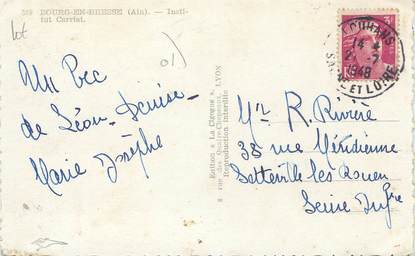 569 BOURG-EN-BRESSE (Ain). — Insti-
tut Carriat.
lot
Un Bec
de Léon-Denise
Marie Josèphe
Edition « La Cigogne »
8 rue des Quatre-Chapeaux, LYON
Reproduction interdite
LOUHANS
14 4
2-7
1948
SAÔNE ET LOIRE
R. Rivière
38 rue Méridienne
Sotteville les Rouen
Seine Infre